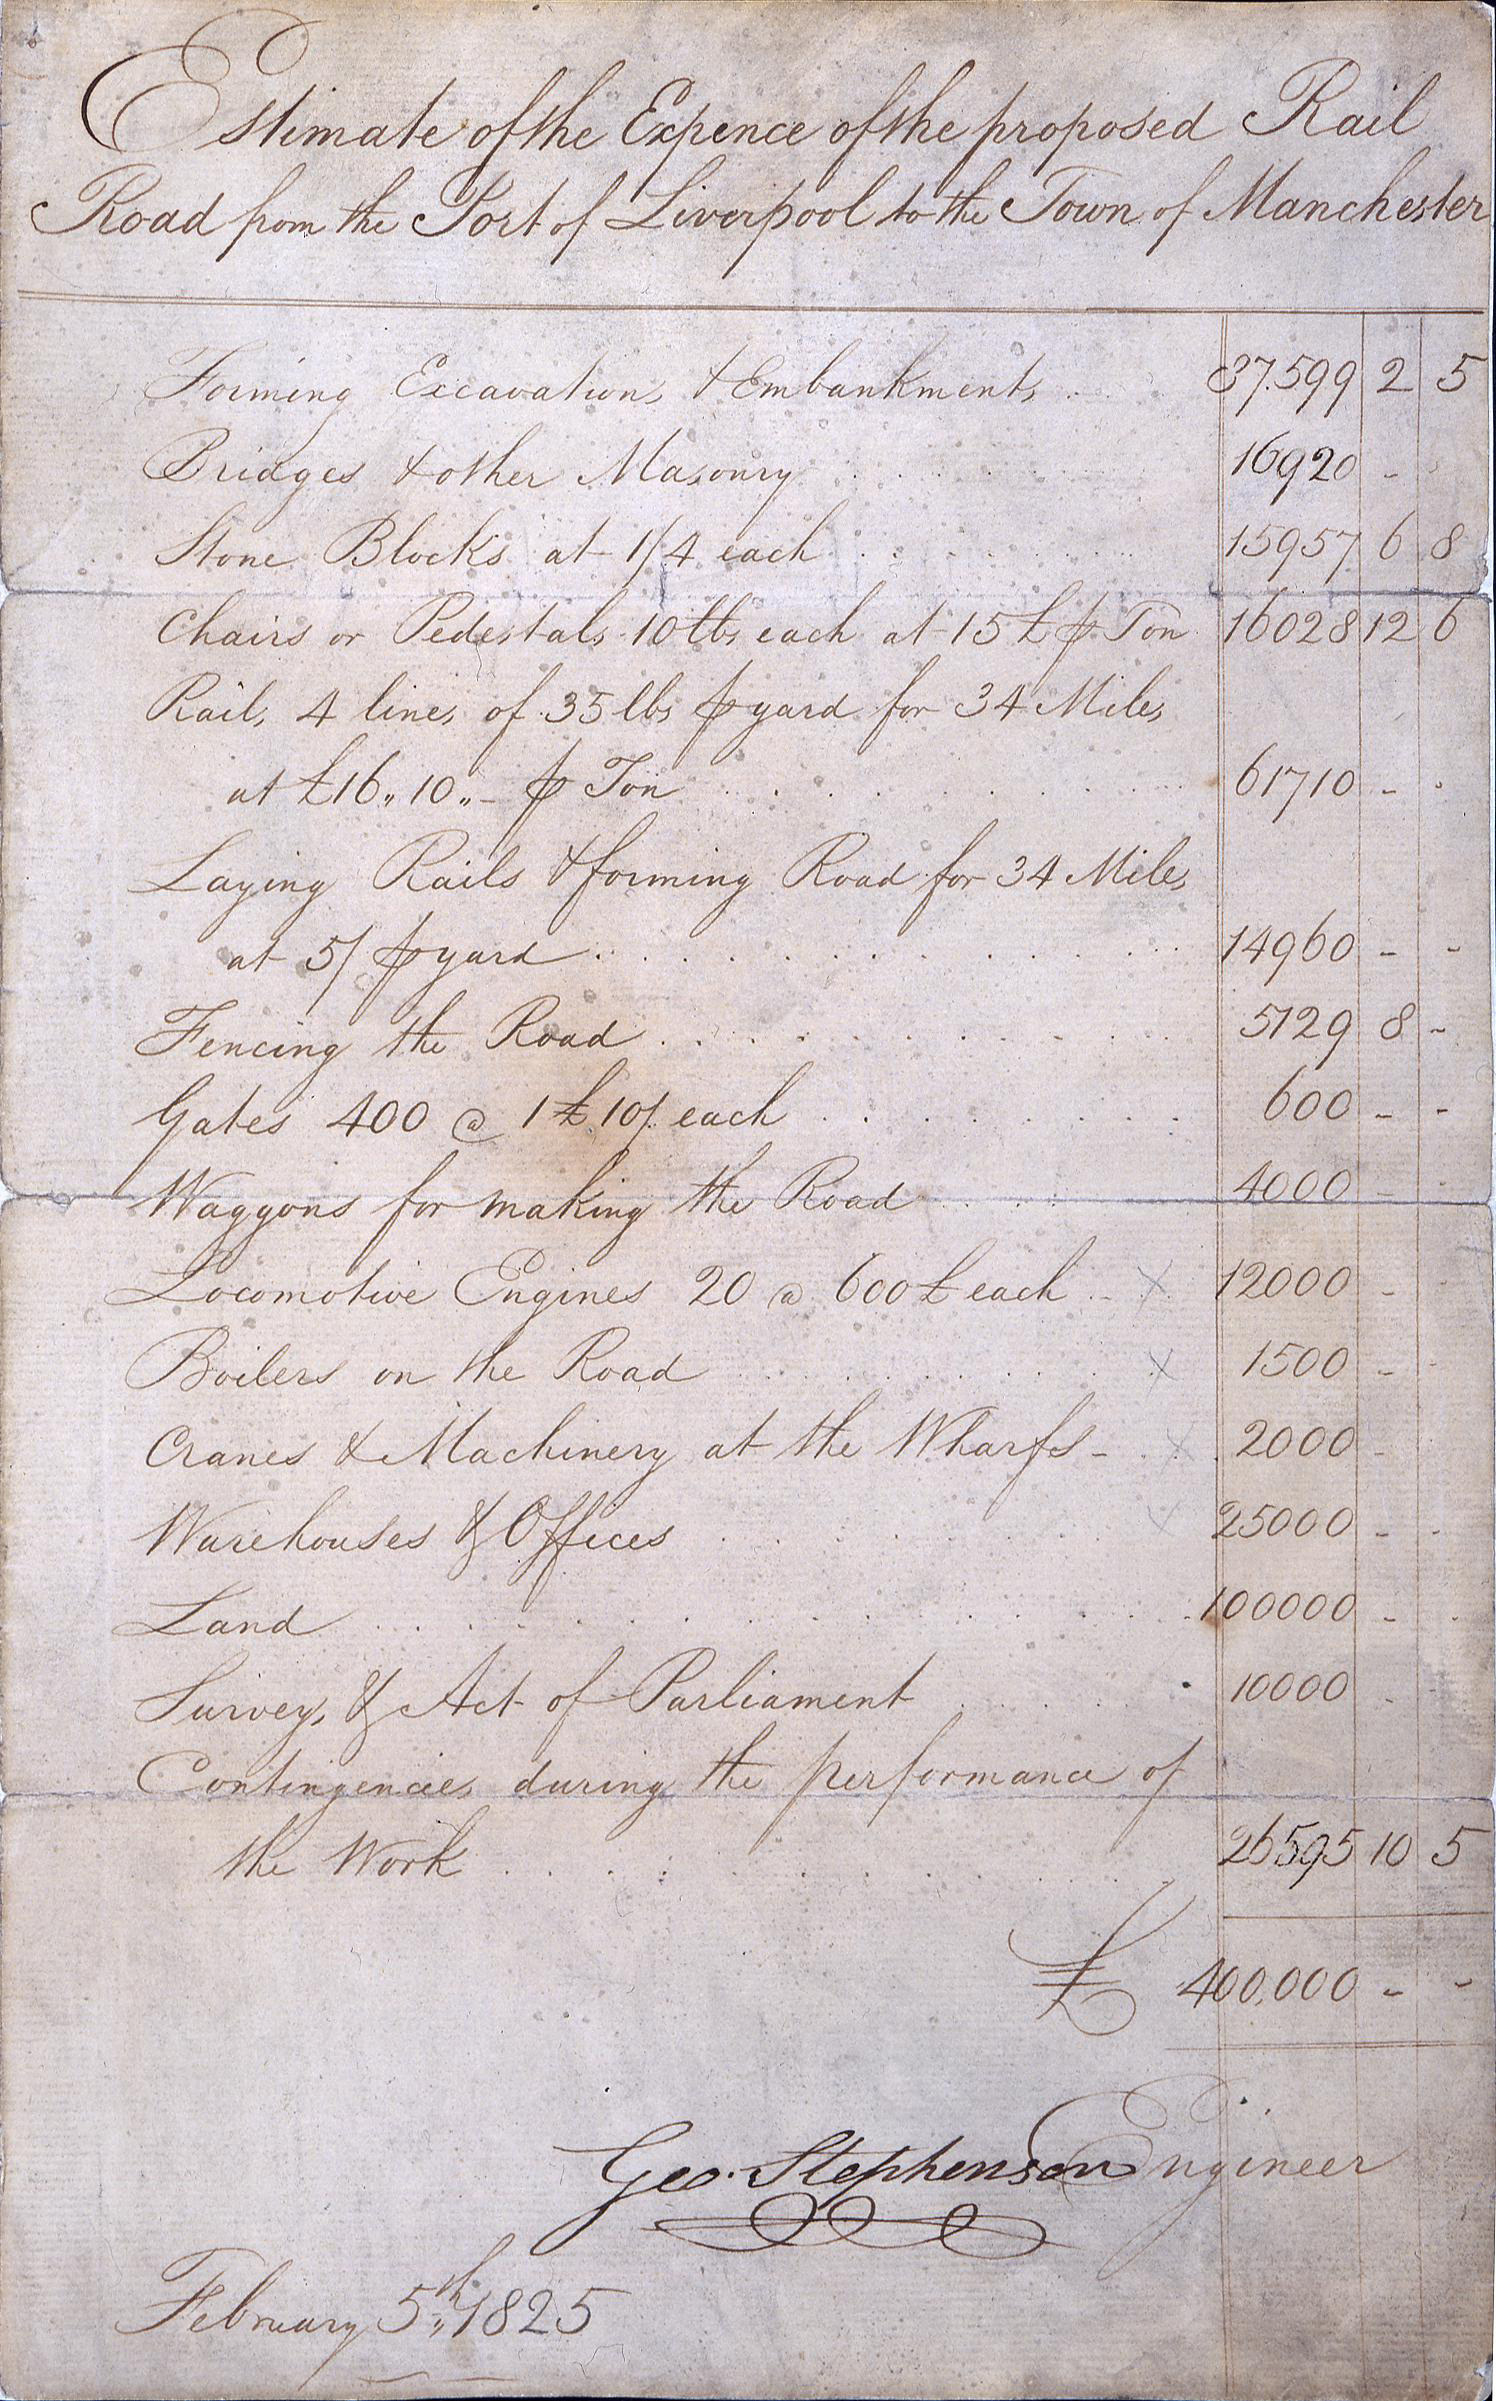 Estimate of the Expence of the proposed Rail
Road from the Port of Liverpool to the Town of Manchester
Forming Excavations & Embankments . . 87.599 2 5
Bridges & other Masonry . . . . 16920 -
Stone Blocks at 1/4 each . . . . 15957 6 8
Chairs or Pedestals 10 lbs each at 15£ ⅌ Ton 16028 12 6
Rails 4 lines of 35 lbs ⅌ yard for 34 Miles
at £16,, 10,, - ⅌ Ton . . . . 61710 - -
Laying Rails & forming Road for 34 Miles
at 5/ ⅌ yard . . . . 14960 - -
Fencing the Road . . . . 5129 8 -
Gates 400 @ 1£ 10/. each . . . . 600 - -
Waggons for making the Road . . . . 4000 - -
Locomotive Engines 20 @ 600£ each . . x 12000 - -
Boilers on the Road . . . . x 1500 - -
Cranes & Machinery at the Wharfs - . x 2000 -
Warehouses & Offices . . . . x 25000 - -
Land . . . . 100000 - -
Surveys, & Act of Parliament . . . . 10000 -
Contingencies during the performance of
the Work . . . . 26595 10 5
£ 400,000 - -
Geo. Stephenson Engineer
February 5th,, 1825